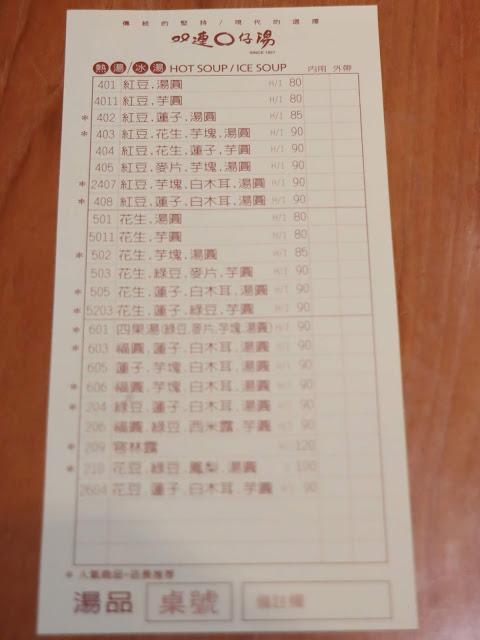 傳統的堅持/現代的選擇
双連〇仔湯
SINCE 1951
熱湯/冰湯 HOT SOUP/ICE SOUP 內用 外帶
401 紅豆.湯圓 H/I 80
4011 紅豆.芋圓 H/I 80
* 402 紅豆.蓮子.湯圓 H/I 85
* 403 紅豆.花生.芋塊.湯圓 H/I 90
404 紅豆.花生.蓮子.芋圓 H/I 90
405 紅豆.麥片.芋塊.湯圓 H/I 90
* 2407 紅豆.芋塊.白木耳.湯圓 H/I 90
* 408 紅豆.蓮子.白木耳.湯圓 H/I 90
501 花生.湯圓 H/I 80
5011 花生.芋圓 H/I 80
* 502 花生.芋塊.湯圓 H/I 85
503 花生.綠豆.麥片.芋圓 H/I 90
* 505 花生.蓮子.白木耳.湯圓 H/I 90
* 5203 花生.蓮子.綠豆.芋圓 H/I 90
* 601 四果湯(綠豆.麥片.芋塊.湯圓) H/I 90
* 603 福圓.蓮子.白木耳.湯圓 H/I 90
605 蓮子.芋塊.白木耳.湯圓 H/I 90
* 606 福圓.芋塊.白木耳.湯圓 H/I 90
* 204 綠豆.蓮子.白木耳.湯圓 H/I 90
206 福圓.綠豆.西米露.芋圓 H/I 90
* 209 窖林露 120
* 210 花豆.綠豆.鳳梨.湯圓 I 100
2604 花豆.蓮子.白木耳.芋圓 90
* 人氣商品-店長推荐
湯品 桌號 備註欄